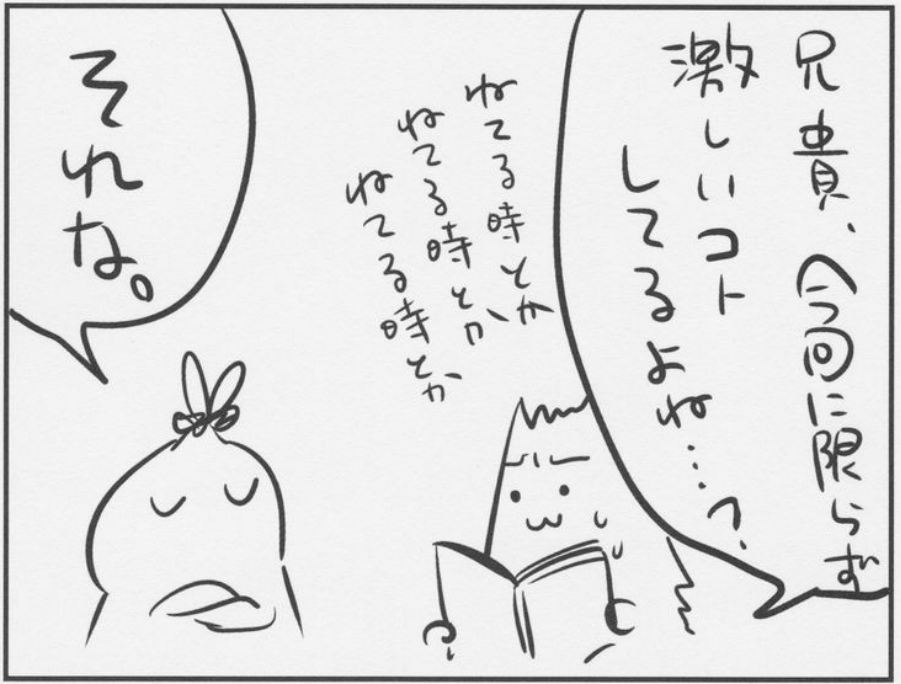 兄貴、今回に限らず
激しいコト
してるよね…?
ねてる時とか
ねてる時とか
ねてる時とか
それな。